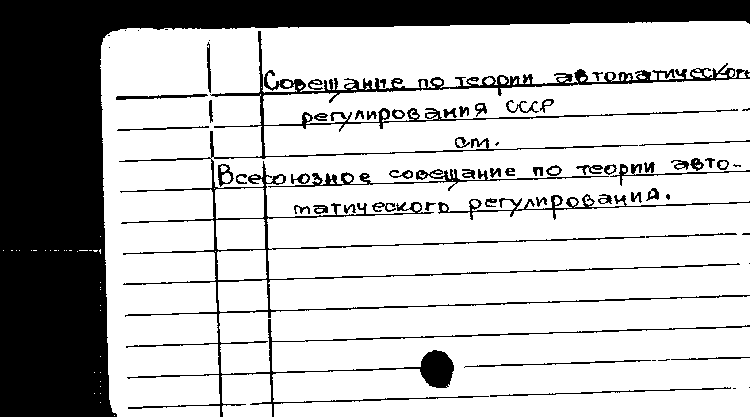 Совещание по теории автоматического
регулирования СССР
см.
Всесоюзное совещание по теории авто-
матического регулирования.